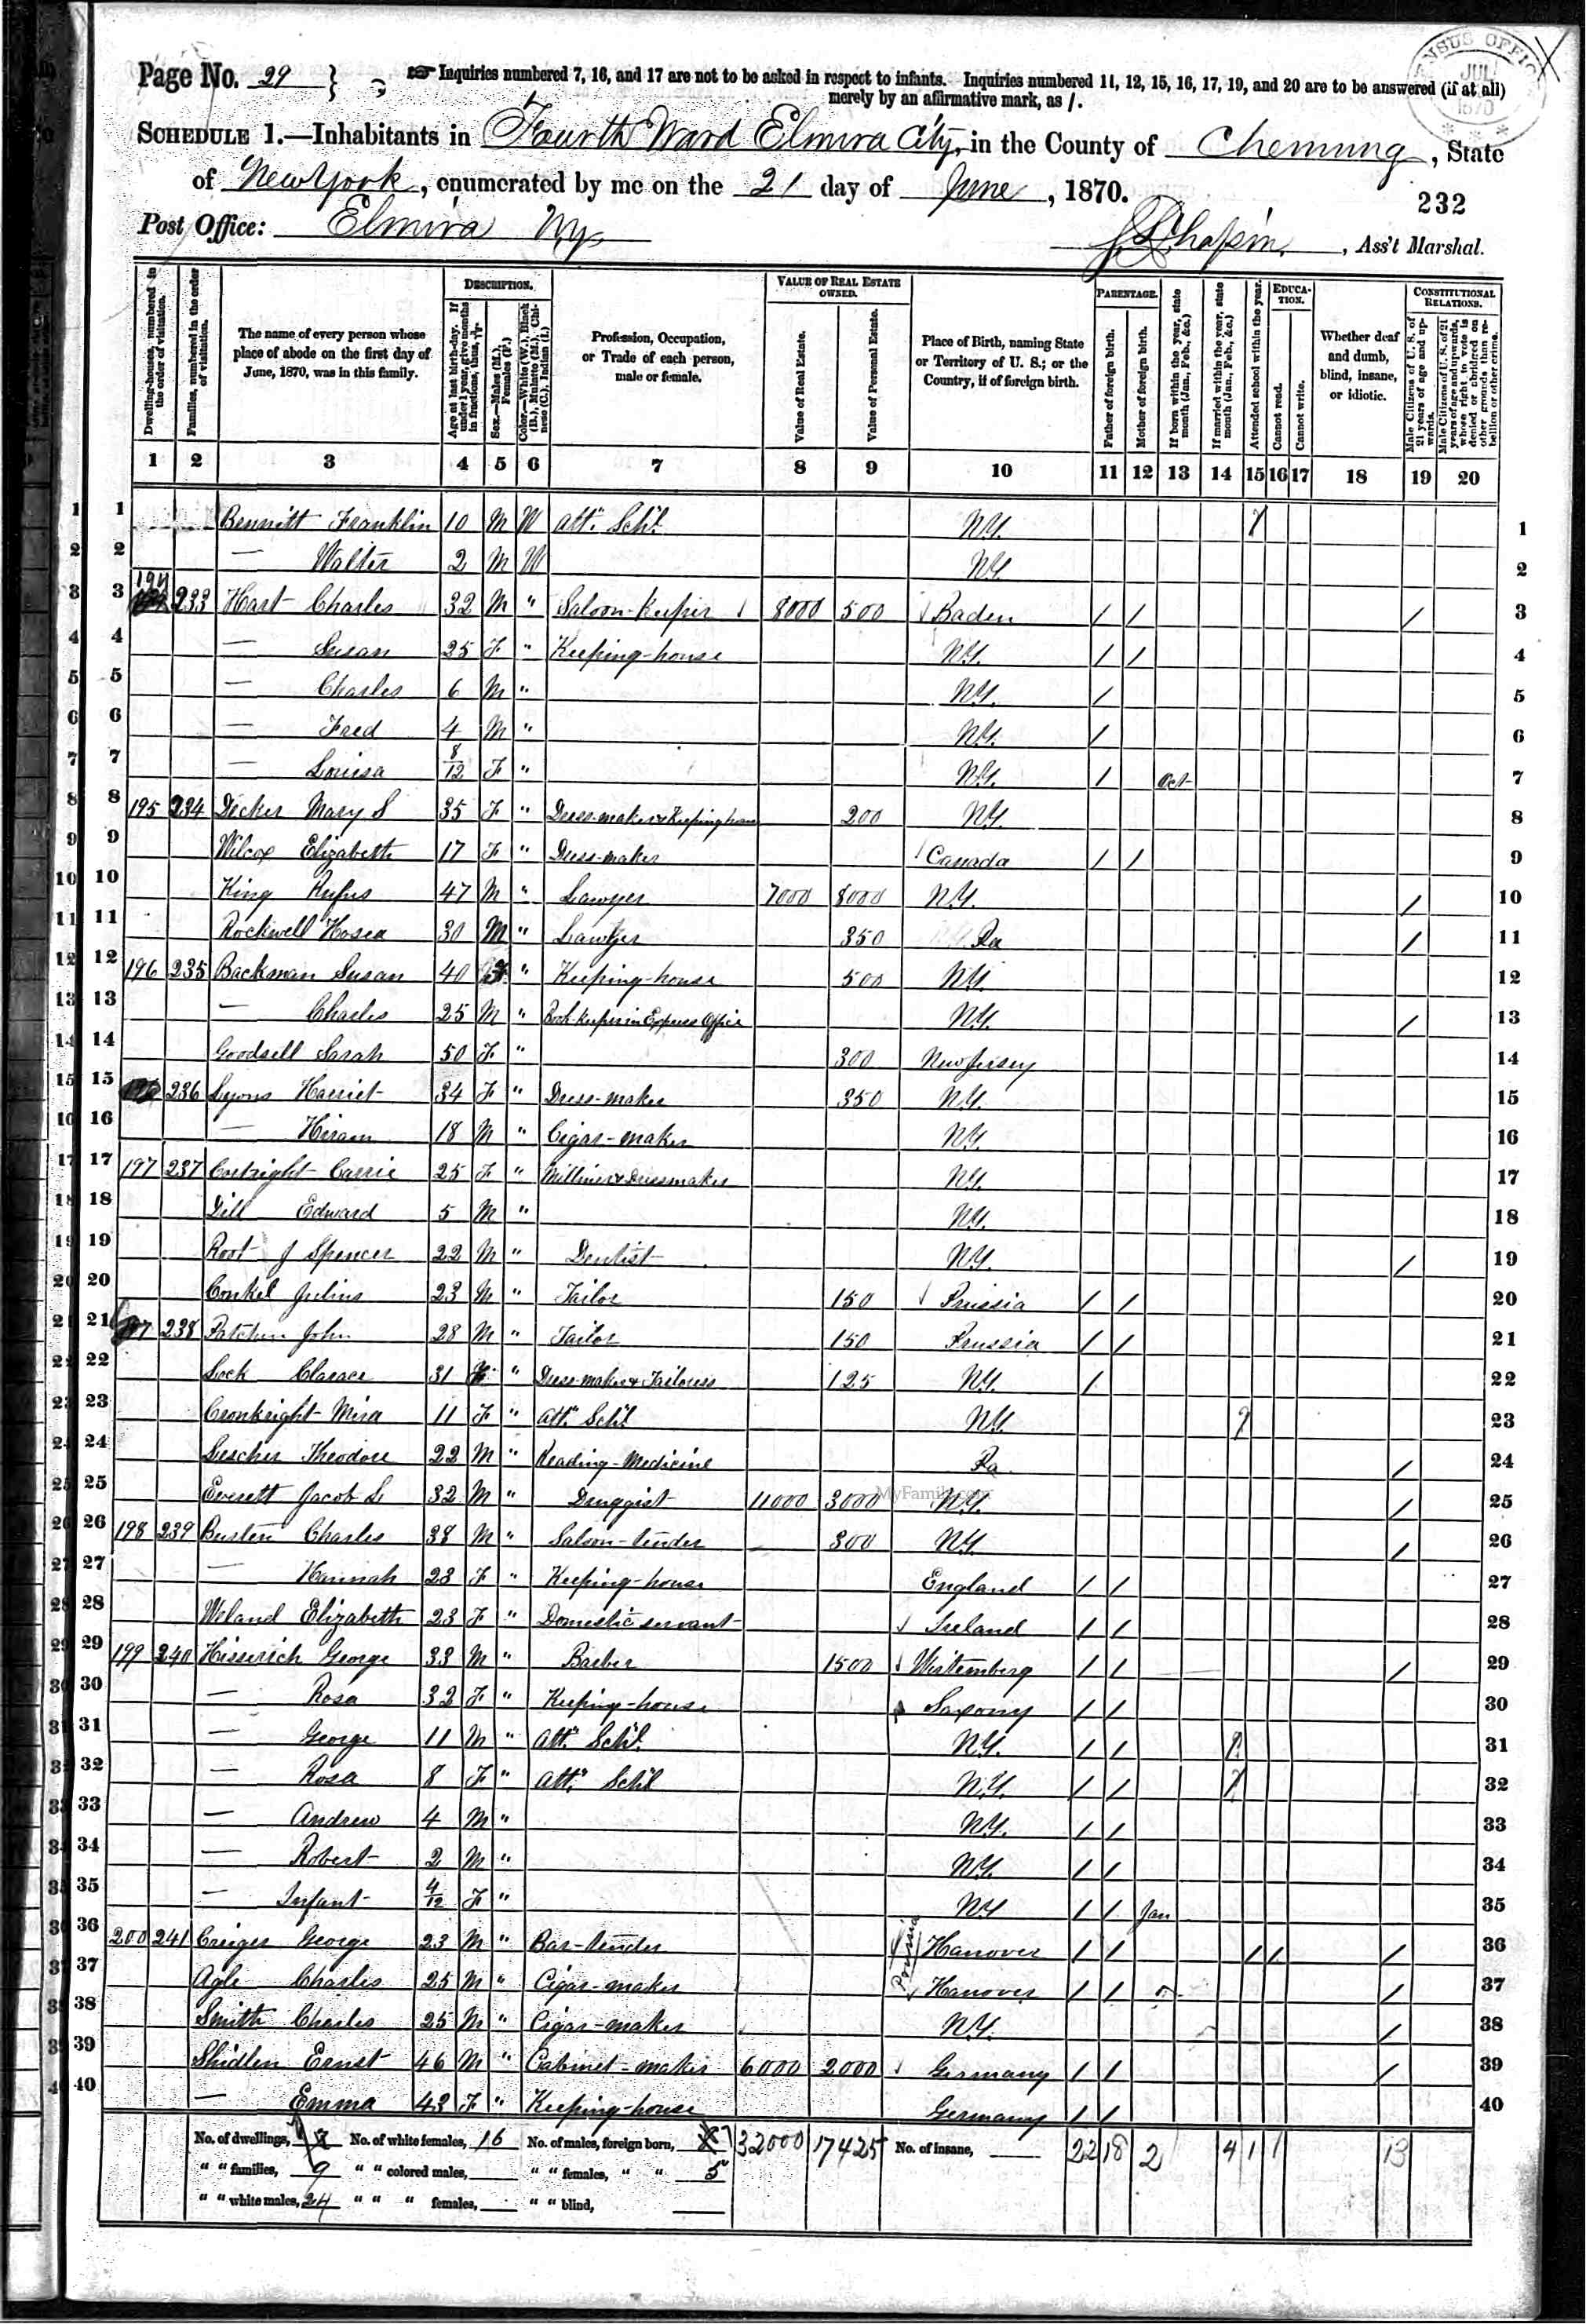 Page No. 29 } Inquiries numbered 7, 16, and 17 are not to be asked in respect to infants. Inquiries numbered 11, 12, 15, 16, 17, 19, and 20 are to be answered (if at all)
merely by an affirmative mark, as /.
CENSUS OFFICE JUL 1870
SCHEDULE 1.—Inhabitants in Fourth Ward Elmira City, in the County of Chemung, State
of New York, enumerated by me on the 21 day of June, 1870.
232
Post Office: Elmira Ny. Chapin, Ass't Marshal.
Dwelling-houses, numbered in the order of visitation.
Families, numbered in the order of visitation.
The name of every person whose place of abode on the first day of June, 1870, was in this family.
DESCRIPTION.
Age at last birth-day. If under 1 year, give months in fractions, thus, 3/12.
Sex.—Males (M.), Females (F.)
Color.—White (W.), Black (B.), Mulatto (M.), Chinese (C.), Indian (I.)
Profession, Occupation, or Trade of each person, male or female.
VALUE OF REAL ESTATE OWNED.
Value of Real Estate.
Value of Personal Estate.
Place of Birth, naming State or Territory of U. S.; or the Country, if of foreign birth.
PARENTAGE.
Father of foreign birth.
Mother of foreign birth.
If born within the year, state month (Jan., Feb., &c.)
If married within the year, state month (Jan., Feb., &c.)
Attended school within the year.
EDUCATION.
Cannot read.
Cannot write.
Whether deaf and dumb, blind, insane, or idiotic.
CONSTITUTIONAL RELATIONS.
Male Citizens of U. S. of 21 years of age and upwards.
Male Citizens of U. S. of 21 years of age and upwards, whose right to vote is denied or abridged on other grounds than rebellion or other crime.
1 2 3 4 5 6 7 8 9 10 11 12 13 14 15 16 17 18 19 20
1 Bennitt Franklin 10 M W Att. Schl. N.Y. / 1
2 — Walter 2 M W N.Y. 2
3 194 233 Hart Charles 32 M " Saloon-Keeper 8000 500 Baden / / / 3
4 — Susan 25 F " Keeping-house N.Y. / / 4
5 — Charles 6 M " N.Y. / 5
6 — Fred 4 M " N.Y. / 6
7 — Louisa 8/12 F " N.Y. / Oct 7
8 195 234 Decker Mary S 35 F " Dress-maker & Keeping house 200 N.Y. 8
9 Wilcox Elizabeth 17 F " Dress-maker Canada / / 9
10 King Rufus 47 M " Lawyer 7000 8000 N.Y. / 10
11 Rockwell Hosea 30 M " Lawyer 350 Pa / 11
12 196 235 Backman Susan 40 F " Keeping-house 500 N.Y. 12
13 — Charles 25 M " Book-keeper in Express Office N.Y. / 13
14 Goodsell Sarah 50 F " 300 New Jersey 14
15 236 Lyons Harriet 34 F " Dress-maker 350 N.Y. 15
16 — Hiram 18 M " Cigar-maker N.Y. 16
17 197 237 Cortright Carrie 25 F " Milliner & Dressmaker N.Y. 17
18 Dill Edward 5 M " N.Y. 18
19 Root J Spencer 22 M " Dentist N.Y. / 19
20 Conkel Julius 23 M " Tailor 150 Prussia / / 20
21 238 Patchen John 28 M " Tailor 150 Prussia / / 21
22 Lock 31 F " Dress-maker & Tailoress 125 N.Y. / 22
23 Cronkright Mira 11 F " Att. Schl N.Y. / 23
24 Lescher Theodore 22 M " Reading-Medicine Pa. / 24
25 Everett Jacob L 32 M " Druggist 11000 3000 N.Y. / 25
MyFamily.com
26 198 239 Busten Charles 38 M " Saloon-tender 300 N.Y. / 26
27 — Hannah 23 F " Keeping-house England / / 27
28 Weland Elizabeth 23 F " Domestic servant Ireland / / 28
29 199 240 Hisserich George 33 M " Barber 1500 Wirtemberg / / / 29
30 — Rosa 32 F " Keeping-house Saxony / / 30
31 — George 11 M " Att. Schl. N.Y. / / / 31
32 — Rosa 8 F " Att. Schl N.Y. / / / 32
33 — Andrew 4 M " N.Y. / / 33
34 — Robert 2 M " N.Y. / / 34
35 — Infant 4/12 F " N.Y / / Jan 35
36 200 241 Creiger George 23 M " Bar-tender Prussia Hanover / / / / / 36
37 Agle Charles 25 M " Cigar-maker Hanover / / / 37
38 Smith Charles 25 M " Cigar-maker N.Y. / 38
39 Shidlen Ernst 46 M " Cabinet-maker 6000 2000 Germany / / / 39
40 — Emma 43 F " Keeping-house Germany / / 40
No. of dwellings, 7 No. of white females, 16 No. of males, foreign born, 7 32000 17425 No. of insane, 22 18 2 4 1 1 13
" " families, 9 " " colored males, " " females, " " 5
" " white males, 24 " " " females, " " blind,